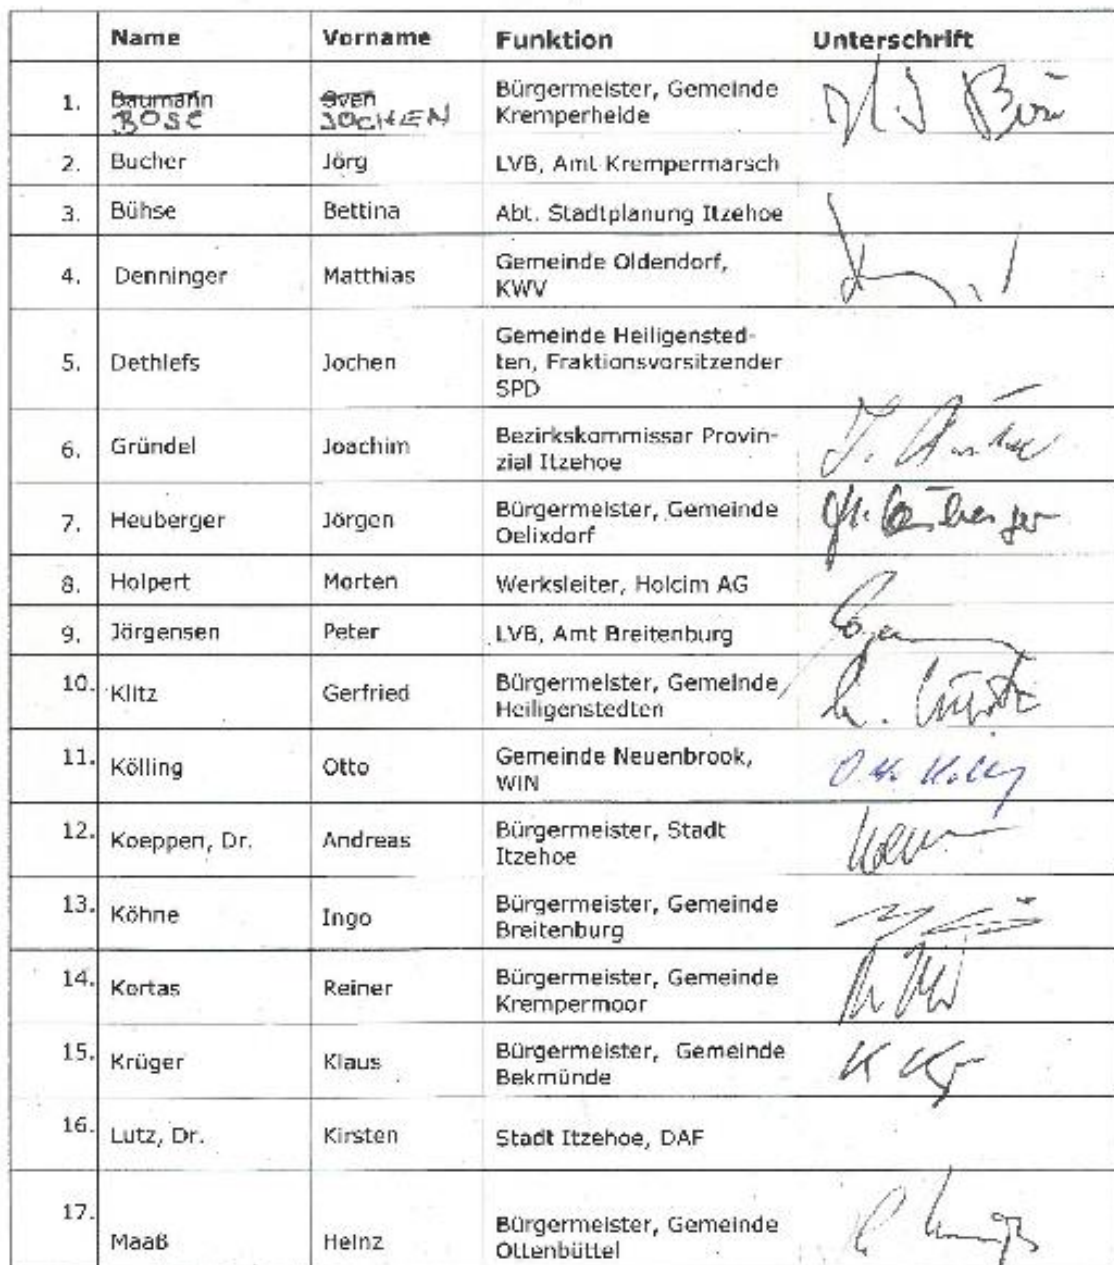 Name Vorname Funktion Unterschrift
1. Baumann Sven Bürgermeister, Gemeinde
BÖSE JOCHEN Kremperheide
2. Bucher Jörg LVB, Amt Krempermarsch
3. Bühse Bettina Abt. Stadtplanung Itzehoe
4. Denninger Matthias Gemeinde Oldendorf,
KWV
5. Dethlefs Jochen Gemeinde Heiligensted-
ten, Fraktionsvorsitzender
SPD
6. Gründel Joachim Bezirkskommissar Provin-
zial Itzehoe
7. Heuberger Jörgen Bürgermeister, Gemeinde
Oelixdorf
8. Holpert Morten Werksleiter, Holcim AG
9. Jörgensen Peter LVB, Amt Breitenburg
10. Klitz Gerfried Bürgermeister, Gemeinde
Heiligenstedten
11. Kölling Otto Gemeinde Neuenbrook,
WIN
12. Koeppen, Dr. Andreas Bürgermeister, Stadt
Itzehoe
13. Köhne Ingo Bürgermeister, Gemeinde
Breitenburg
14. Kortas Reiner Bürgermeister, Gemeinde
Krempermoor
15. Krüger Klaus Bürgermeister, Gemeinde
Bekmünde
16. Lutz, Dr. Kirsten Stadt Itzehoe, DAF
17. Maaß Heinz Bürgermeister, Gemeinde
Ottenbüttel